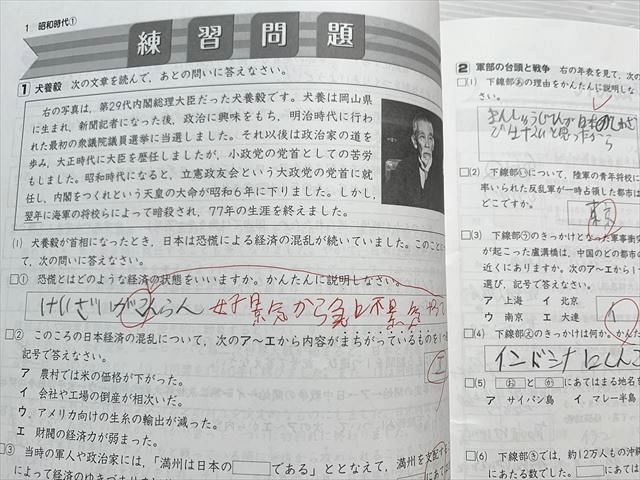 1 昭和時代①
練習問題
1 犬養毅 次の文章を読んで,あとの問いに答えなさい。
右の写真は,第29代内閣総理大臣だった犬養毅です。犬養は岡山県
に生まれ,新聞記者になった後,政治に興味をもち,明治時代に行わ
れた最初の衆議院議員選挙に当選しました。それ以後は政治家の道を
歩み,大正時代に大臣を歴任しましたが,小政党の党首としての苦労
もしました。昭和時代になると,立憲政友会という大政党の党首に就
任し,内閣をつくれという天皇の大命が昭和6年に下りました。しかし,
翌年に海軍の将校らによって暗殺され,77年の生涯を終えました。
(1) 犬養毅が首相になったとき,日本は恐慌による経済の混乱が続いていました。このことに
て,次の問いに答えなさい。
□① 恐慌とはどのような経済の状態をいいますか。かんたんに説明しなさい。
けいざいがこんらん 好景気から急に不景気
□② このころの日本経済の混乱について,次のア〜エから内容がまちがっているものを1つ
記号で答えなさい。
ア 農村では米の価格が下がった。
イ 会社や工場の倒産が相次いだ。
ウ アメリカ向けの生糸の輸出が減った。
エ 財閥の経済力が弱まった。
□③ 当時の軍人や政治家には,「満州は日本の□である」ととなえて,満州を支配する
によって経済の
2 軍部の台頭と戦争 右の年表を見て,次の
□(1) 下線部あの理由をかんたんに説明しな
さい。
□(2) 下線部いについて,陸軍の青年将校に
率いられた反乱軍が一時占領した都市は
どこですか。
東京
□(3) 下線部うのきっかけとなった軍事衝突
が起こった盧溝橋は,中国のどの都市の
近くにありますか。次のア〜エから1つ
選び,記号で答えなさい。
ア 上海 イ 北京
ウ 南京 エ 大連
イ
□(4) 下線部えのきっかけは何か。かんた
□(5) おとかにあてはまる地名を
ア サイパン島 イ マレー半島
□(6) 下線部きでは,約12万人もの沖縄
にあたる数でした。